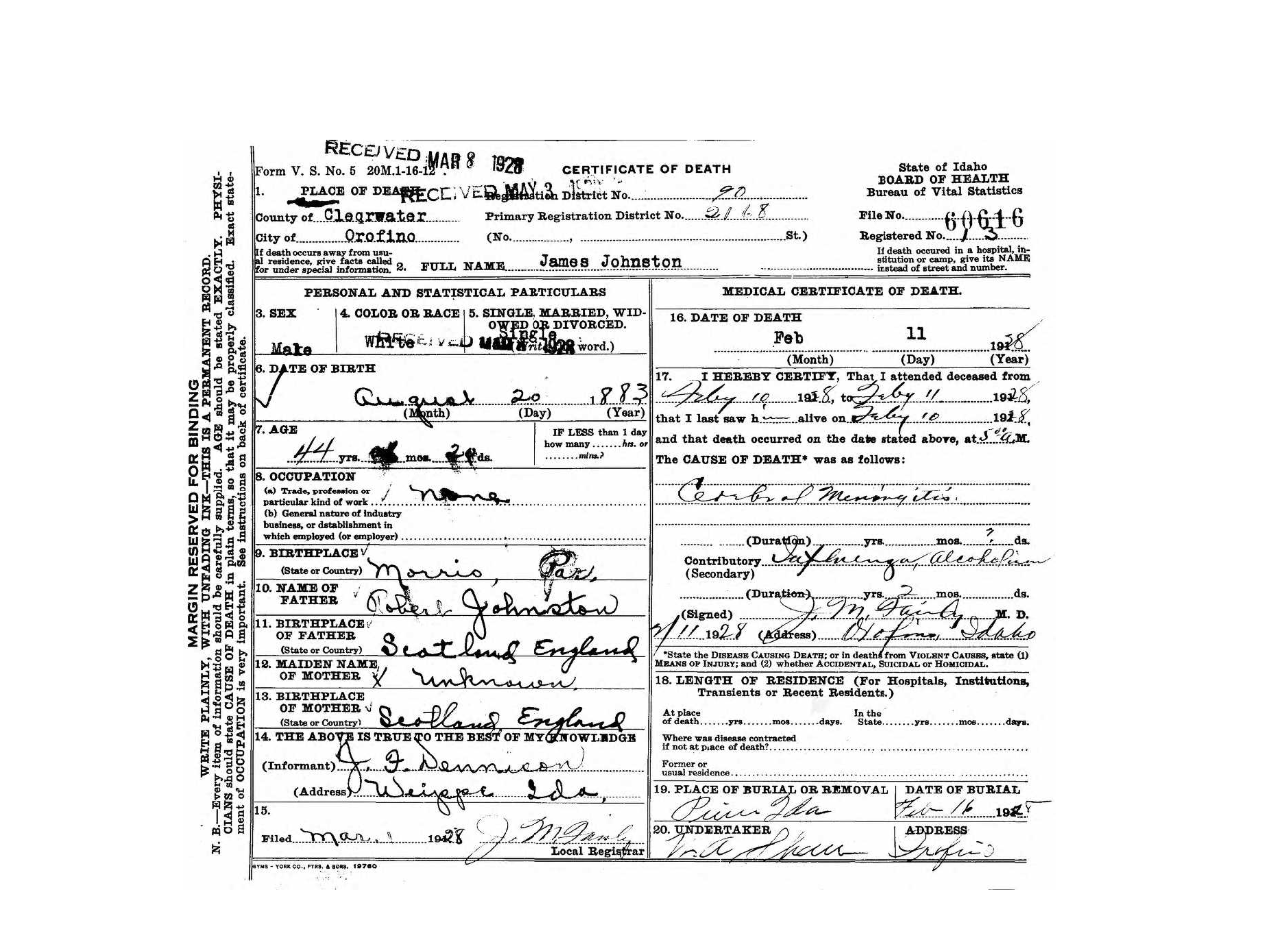 RECEIVED MAR 8 1928
Form V. S. No. 5 20M.1-16-12
CERTIFICATE OF DEATH
State of Idaho
BOARD OF HEALTH
Bureau of Vital Statistics
1. PLACE OF DEATH
RECEIVED MAY 3
Registration District No. 90
County of Cleqrwater
Primary Registration District No. 2118
File No. 60616
City of Orofino
(No. , St.)
Registered No. 13
If death occurs away from usual residence, give facts called for under special information.
2. FULL NAME James Johnston
If death occured in a hospital, institution or camp, give its NAME instead of street and number.
MARGIN RESERVED FOR BINDING
WRITE PLAINLY, WITH UNFADING INK—THIS IS A PERMANENT RECORD.
N. B.—Every item of information should be carefully supplied. AGE should be stated EXACTLY. PHYSI-
CIANS should state CAUSE OF DEATH in plain terms, so that it may be properly classified. Exact state-
ment of OCCUPATION is very important. See instructions on back of certificate.
PERSONAL AND STATISTICAL PARTICULARS
3. SEX
Male
4. COLOR OR RACE
White
5. SINGLE, MARRIED, WID-
OWED OR DIVORCED.
Single
(Write word.)
RECEIVED
6. DATE OF BIRTH
August 20 1883
(Month) (Day) (Year)
7. AGE
44 yrs. mos. ds.
IF LESS than 1 day
how many ....... hrs. or
........ mins.?
8. OCCUPATION
(a) Trade, profession or
particular kind of work none
(b) General nature of industry
business, or dstablishment in
which employed (or employer)
9. BIRTHPLACE
(State or Country) Morris,
10. NAME OF
FATHER Robert Johnston
11. BIRTHPLACE
OF FATHER
(State or Country) Scotland England
12. MAIDEN NAME
OF MOTHER Unknown
13. BIRTHPLACE
OF MOTHER
(State or Country) Scotland, England
14. THE ABOVE IS TRUE TO THE BEST OF MY KNOWLEDGE
(Informant) J. F. Dennison
(Address) Weippe Ida,
15.
Filed Mar. 1 1928 J. M. Fairly
Local Registrar
SYMS - YORK CO., PTRS. & BDRS. 19760
MEDICAL CERTIFICATE OF DEATH.
16. DATE OF DEATH
Feb 11 1928
(Month) (Day) (Year)
17. I HEREBY CERTIFY, That I attended deceased from
Feby 10 1928, to Feby 11 1928,
that I last saw h alive on Feby 10 1928,
and that death occurred on the date stated above, at 5 00 A. M.
The CAUSE OF DEATH* was as follows:
Cerebral Meningitis.
(Duration) yrs. mos. ? ds.
Contributory Influenza, Alcoholism
(Secondary)
(Duration) yrs. 2 mos. ds.
(Signed) J. M. Fairly M. D.
2/11 1928 (Address) Orofino, Idaho
*State the DISEASE CAUSING DEATH; or in deaths from VIOLENT CAUSES, state (1)
MEANS OF INJURY; and (2) whether ACCIDENTAL, SUICIDAL OR HOMICIDAL.
18. LENGTH OF RESIDENCE (For Hospitals, Institutions,
Transients or Recent Residents.)
At place
of death......yrs.......mos......days.
In the
State.......yrs.......mos......days.
Where was disease contracted
if not at place of death?
Former or
usual residence
19. PLACE OF BURIAL OR REMOVAL
Pierce Ida
DATE OF BURIAL
Feb 16 1928
20. UNDERTAKER
Shaw
ADDRESS
Orofino